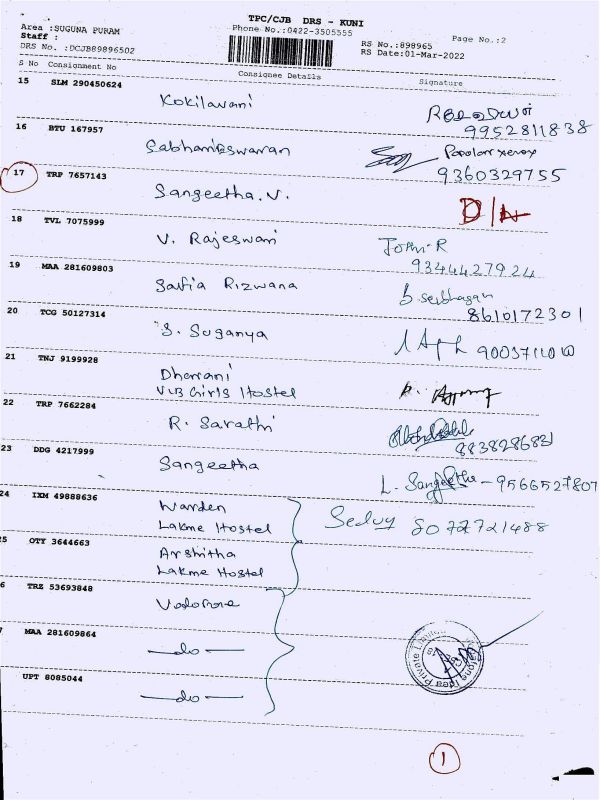 TPC/CJB DRS - KUNI
Area :SUGUNA PURAM
Phone No.:0422-3505555
Page No.:2
Staff :
RS No.:898965
DRS No. :DCJB89896502
RS Date:01-Mar-2022
S No Consignment No Consignee Details Signature
15 SLM 290450624
Kokilavani
9952811838
16 BTU 167957
Sabhanieswaran
Popolar xerox
9360329755
17 TRP 7657143
Sangeetha.V.
D/L
18 TVL 7075999
V. Rajeswari
John.R
9344427924
19 MAA 281609803
Safia Rizwana
8610172301
20 TCG 50127314
S. Suganya
21 TNJ 9199928
Dharani
Girls Hostel
22 TRP 7662284
R. Sarathi
23 DDG 4217999
Sangeetha
L. Sangeetha - 9566527807
24 IXM 49888636
Warden
Lakme Hostel
25 OTY 3644663
Arshitha
Lakme Hostel
6 TRZ 53693848
Vodofone
7 MAA 281609864
— do —
UPT 8085044
— do —
Idea Private Limited
1